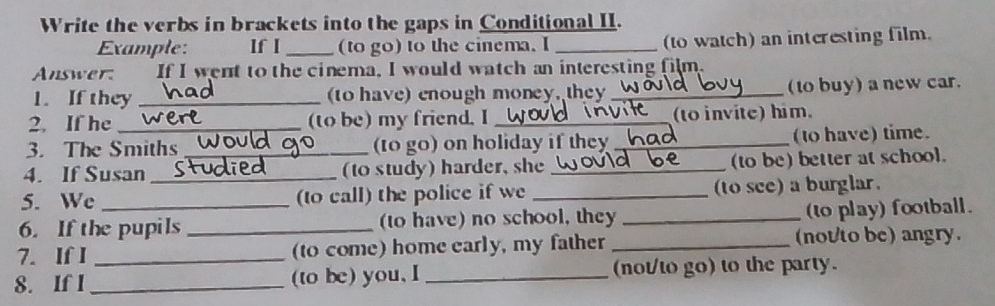 Write the verbs in brackets into the gaps in Conditional II.
Example: If I ____ (to go) to the cinema, I __________ (to watch) an interesting film.
Answer: If I went to the cinema, I would watch an interesting film.
1. If they had (to have) enough money, they would buy (to buy) a new car.
2. If he were (to be) my friend, I would invite (to invite) him.
3. The Smiths would go (to go) on holiday if they had (to have) time.
4. If Susan studied (to study) harder, she would be (to be) better at school.
5. We __________ (to call) the police if we __________ (to see) a burglar.
6. If the pupils __________ (to have) no school, they __________ (to play) football.
7. If I __________ (to come) home early, my father __________ (not/to be) angry.
8. If I __________ (to be) you, I __________ (not/to go) to the party.